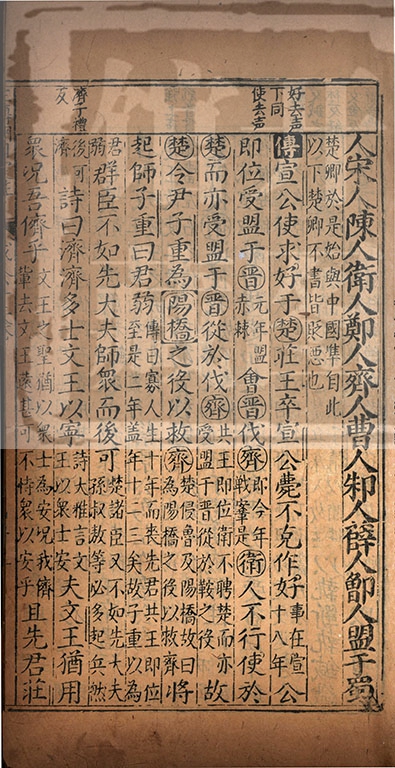 好去声
下同
使去声
濟丁禮
反
人宋人陳人衛人鄭人齊人曹人邾人薛人鄫人盟于蜀
楚卿於是始與中國凖自此
以下楚卿不書皆貶惡也
傳宣公使求好于楚莊王卒宣公薨不克作好事在宣十八年公
即位受盟于晉元年盟赤棘會晉伐齊即今年戰鞌是衛人不行使於
楚而亦受盟于晉從於伐齊共王即位衛不聘楚而亦受盟于晉從於鞍之後故
楚令尹子重為陽橋之役以救齊楚侵魯及陽橋故曰為陽橋之役以救齊將
起師子重曰君弱傳曰寡人生十年而喪先君共王即位至是二年盖年十二三矣故子重以為
君弱群臣不如先大夫師衆而後可楚諸臣又不如先大夫孫叔敖等必多起兵然
後可濟詩曰濟濟多士文王以寧詩大雅言文王以衆士安夫文王猶用
衆况吾儕乎文王之聖猶以衆士為安况我儕輩去文王遠甚可不恃衆以安乎且先君莊